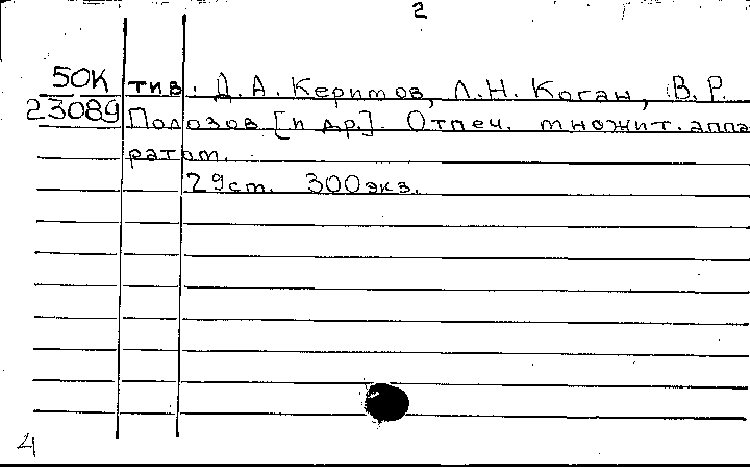 2
50К тив: Д.А. Керимов, Л.Н. Коган, В.Р.
23089 Полозов [и др.]. Отпеч. множит. аппа
ратом.
29ст. 300экз.
4